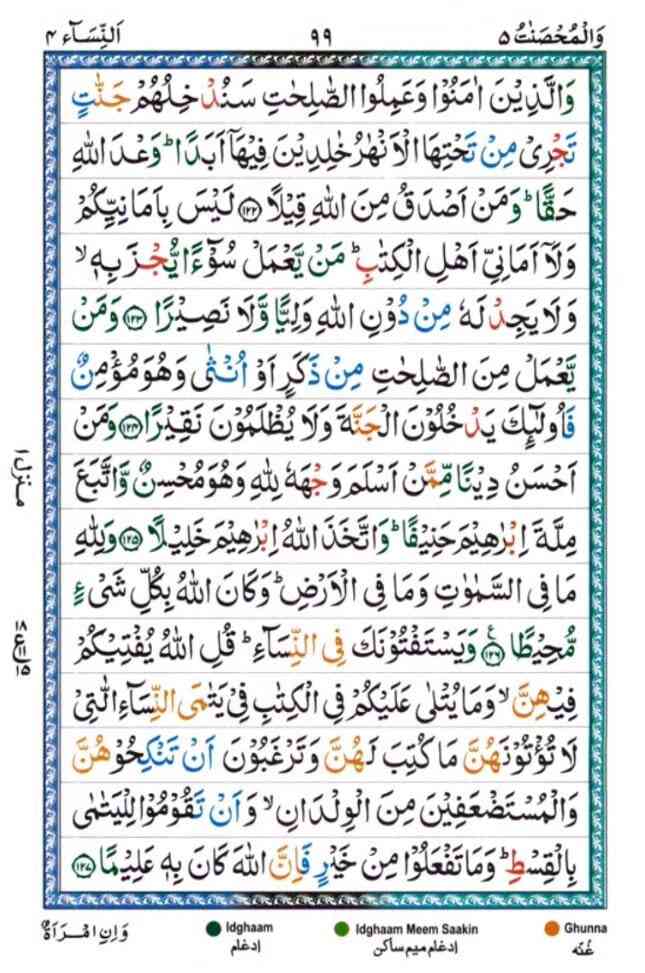 وَالْمُحْصَنٰتُ ۵
۹۹
اَلنِّسَآء ۴
وَالَّذِيْنَ اٰمَنُوْا وَعَمِلُوا الصّٰلِحٰتِ سَنُدْخِلُهُمْ جَنّٰتٍ
تَجْرِیْ مِنْ تَحْتِهَا الْاَنْهٰرُ خٰلِدِيْنَ فِيْهَاۤ اَبَدًا ؕ وَعْدَ اللهِ
حَقًّا ؕ وَمَنْ اَصْدَقُ مِنَ اللهِ قِيْلًا ﴿۱۲۲﴾ لَيْسَ بِاَمَانِيِّكُمْ
وَلَاۤ اَمَانِیِّ اَهْلِ الْكِتٰبِ ؕ مَنْ يَّعْمَلْ سُوْٓءًا يُّجْزَ بِهٖ ۙ
وَلَا يَجِدْ لَهٗ مِنْ دُوْنِ اللهِ وَلِيًّا وَّلَا نَصِيْرًا ﴿۱۲۳﴾ وَمَنْ
يَّعْمَلْ مِنَ الصّٰلِحٰتِ مِنْ ذَكَرٍ اَوْ اُنْثٰى وَهُوَ مُؤْمِنٌ
فَاُولٰٓئِكَ يَدْخُلُوْنَ الْجَنَّةَ وَلَا يُظْلَمُوْنَ نَقِيْرًا ﴿۱۲۴﴾ وَمَنْ
اَحْسَنُ دِيْنًا مِّمَّنْ اَسْلَمَ وَجْهَهٗ لِلّٰهِ وَهُوَ مُحْسِنٌ وَّاتَّبَعَ
مِلَّةَ اِبْرٰهِيْمَ حَنِيْفًا ؕ وَاتَّخَذَ اللهُ اِبْرٰهِيْمَ خَلِيْلًا ﴿۱۲۵﴾ وَلِلّٰهِ
مَا فِی السَّمٰوٰتِ وَمَا فِی الْاَرْضِ ؕ وَكَانَ اللهُ بِكُلِّ شَیْءٍ
مُّحِيْطًا ﴿۱۲۶﴾ ع وَيَسْتَفْتُوْنَكَ فِی النِّسَآءِ ؕ قُلِ اللهُ يُفْتِيْكُمْ
فِيْهِنَّ ۙ وَمَا يُتْلٰى عَلَيْكُمْ فِی الْكِتٰبِ فِیْ يَتٰمَى النِّسَآءِ الّٰتِیْ
لَا تُؤْتُوْنَهُنَّ مَا كُتِبَ لَهُنَّ وَتَرْغَبُوْنَ اَنْ تَنْكِحُوْهُنَّ
وَالْمُسْتَضْعَفِيْنَ مِنَ الْوِلْدَانِ ۙ وَاَنْ تَقُوْمُوْا لِلْيَتٰمٰى
بِالْقِسْطِ ؕ وَمَا تَفْعَلُوْا مِنْ خَيْرٍ فَاِنَّ اللهَ كَانَ بِهٖ عَلِيْمًا ﴿۱۲۷﴾
منزل ۱
۱۸
ع ۱۱
۱۵
وَاِنِ امْرَاَةٌ
Idghaam
ادغام
Idghaam Meem Saakin
ادغام ميم ساكن
Ghunna
غُنّه